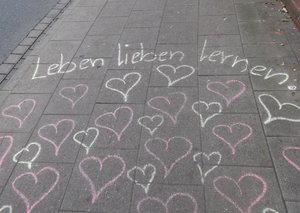 Leben lieben lernen.